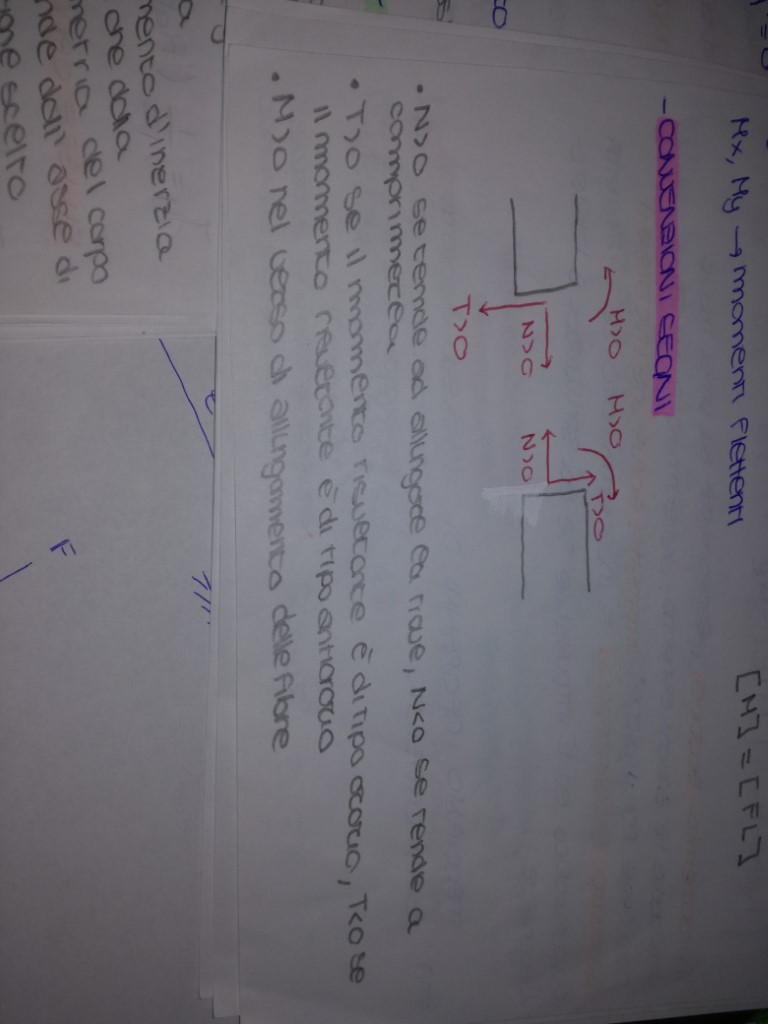 Mx, My → momenti flettenti
[M] = [FL]
- CONVENZIONI SEGNI
M>0 M>0
T>0
N>0 N>0
T>0
• N>0 se tende ad allungare la trave, N<0 se tende a
comprimerla
• T>0 se il momento risultante è di tipo orario, T<0 se
il momento risultante è di tipo antiorario
• M>0 nel verso di allungamento delle fibre
mento d'inerzia
che dalla
metria del corpo
nde dall'asse di
one scelto
F